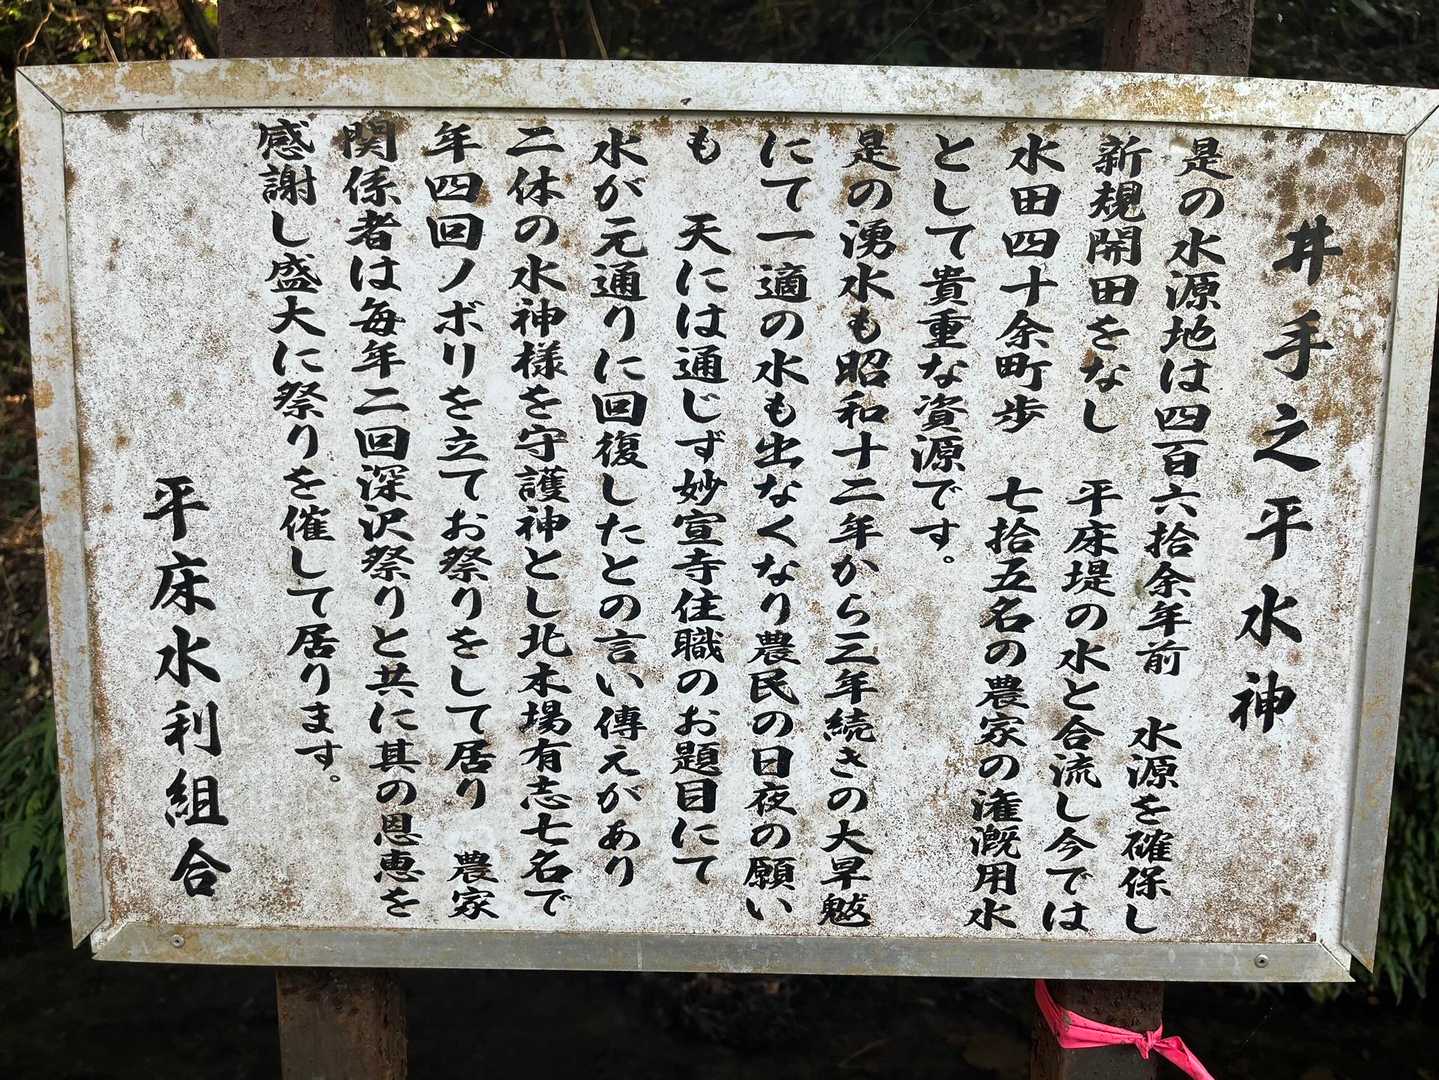 井手之平水神
是の水源地は四百六拾余年前　水源を確保し
新規開田をなし　平床堤の水と合流し今では
水田四十余町歩　七拾五名の農家の潅漑用水
として貴重な資源です。
是の湧水も昭和十二年から三年続きの大旱魃
にて一適の水も出なくなり農民の日夜の願い
も　天には通じず妙宣寺住職のお題目にて
水が元通りに回復したとの言い傳えがあり
二体の水神様を守護神とし北木場有志七名で
年四回ノボリを立てお祭りをして居り　農家
関係者は毎年二回深沢祭りと共に其の恩恵を
感謝し盛大に祭りを催して居ります。
平床水利組合